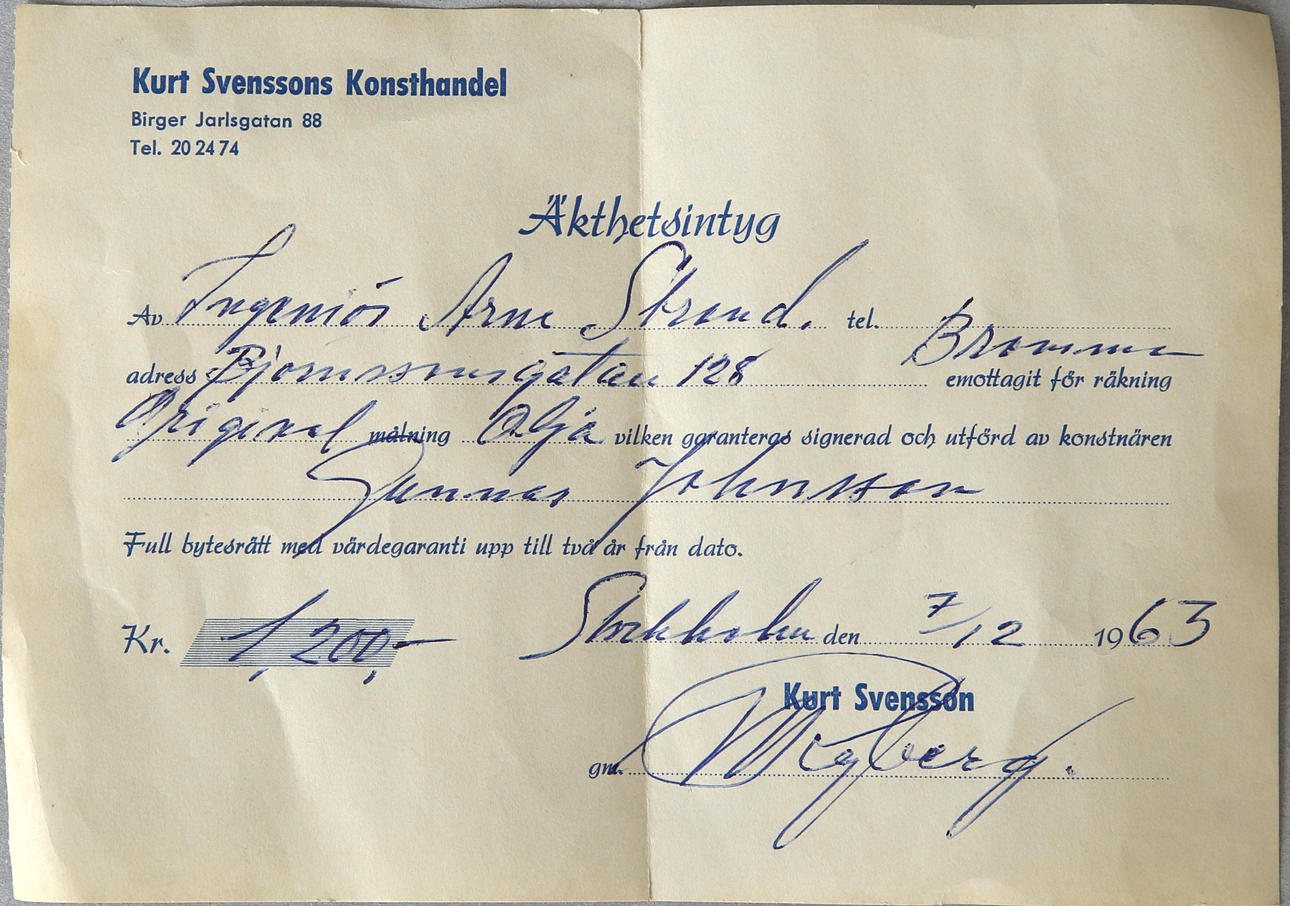 Kurt Svenssons Konsthandel
Birger Jarlsgatan 88
Tel. 20 24 74
Äkthetsintyg
Av Ingeniör Arne Strand. tel.
Bromma
adress Björnssonsgatan 128 emottagit för räkning
Original målning Olja vilken garanteras signerad och utförd av konstnären
Gunnar Johnsson
Full bytesrätt med värdegaranti upp till två år från dato.
Kr. 1,200,- Stockholm den 7/12 1963
Kurt Svensson
gm. Wigberg.